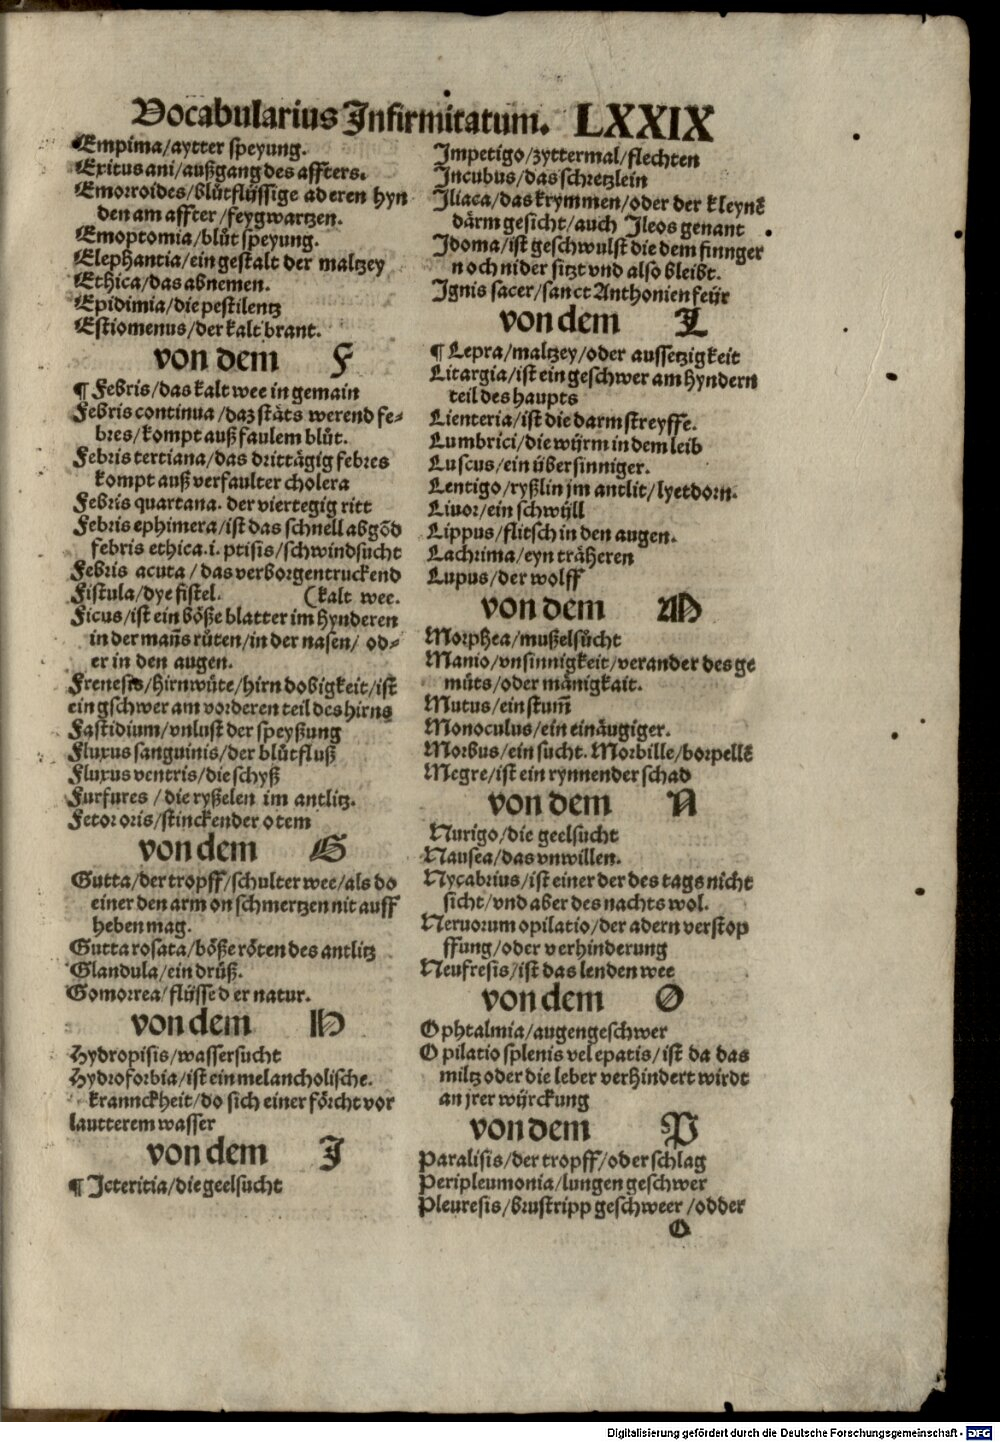 Vocabularius Infirmitatum. LXXIX
Empima/aytter speyung.
Exitus ani/außgang des affters.
Emorroides/blůtflüssige aderen hyn
den am affter/feygwartzen.
Emoptomia/blůt speyung.
Elephantia/ein gestalt der maltzey
Ethica/das abnemen.
Epidimia/die pestilentz
Estiomenus/der kalt brant.
von dem F
¶ Febris/das kalt wee in gemain
Febris continua/daz stäts werend fe⸗
bres/kompt auß faulem blůt.
Febris tertiana/das drittägig febres
kompt auß verfaulter cholera
Febris quartana. der viertegig ritt
Febris ephimera/ist das schnell abgōd
febris ethica.i. ptisis/schwindsucht
Febris acuta/das verborgen truckend
Fistula/dye fistel. (kalt wee.
Ficus/ist ein böße blatter im hynderen
in der mañs růten/in der nasen/ od⸗
er in den augen.
Frenesis/hirnwüte/hirn dobigkeit/ist
ein gschwer am vorderen teil des hirns
Fastidium/vnlust der speyßung
Fluxus sanguinis/der blůtfluß
Fluxus ventris/die schyß
Furfures/die ryßelen im antlitz.
Fetor oris/stinckender otem
von dem G
Gutta/der tropff/schulter wee/als do
einer den arm on schmertzen nit auff
heben mag.
Gutta rosata/böße röten des antlitz
Glandula/ein drüß.
Gomorrea/flüsse der natur.
von dem H
Hydropisis/wassersucht
Hydroforbia/ist ein melancholische.
kranckheit/do sich einer förcht vor
lautterem wasser
von dem I
¶ Icteritia/die geelsucht
Impetigo/zyttermal/flechten
Incubus/das schretzlein
Iliaca/das krymmen/oder der kleynē
därm gesicht/auch Ileos genant
Idoma/ist geschwulst die dem finnger
noch nider sitzt vnd also bleibt.
Ignis sacer/sanct Anthonien feür
von dem L
¶ Lepra/maltzey/oder aussetzigkeit
Litargia/ist ein geschwer am hyndern
teil des haupts
Lienteria/ist die darmstreyffe.
Lumbrici/die würm in dem leib
Luscus/ein übersinniger.
Lentigo/ryßlin jm antlit/lyetdorn.
Liuor/ein schwyll
Lippus/flitsch in den augen.
Lachrima/eyn träheren
Lupus/der wolff
von dem M
Morphea/mußelsücht
Manio/vnsinnigkeit/verander des ge
müts/oder mänigkait.
Mutus/ein stum̄
Monoculus/ein einäugiger.
Morbus/ein sucht. Morbille/borpellē
Megre/ist ein rynnender schad
von dem N
Nurigo/die geelsucht
Nausea/das vnwillen.
Nycabrius/ist einer der des tags nicht
sicht/vnd aber des nachts wol.
Neruorum opilatio/der adern verstop
ffung/oder verhinderung
Neufresis/ist das lenden wee
von dem O
Ophtalmia/augengeschwer
Opilatio splenis vel epatis/ist da das
miltz oder die leber verhindert wirdt
an jrer würckung
von dem P
Paralisis/der tropff/oder schlag
Peripleumonia/lungen geschwer
Pleuresis/brustripp geschweer/odder
O
Digitalisierung gefördert durch die Deutsche Forschungsgemeinschaft - DFG